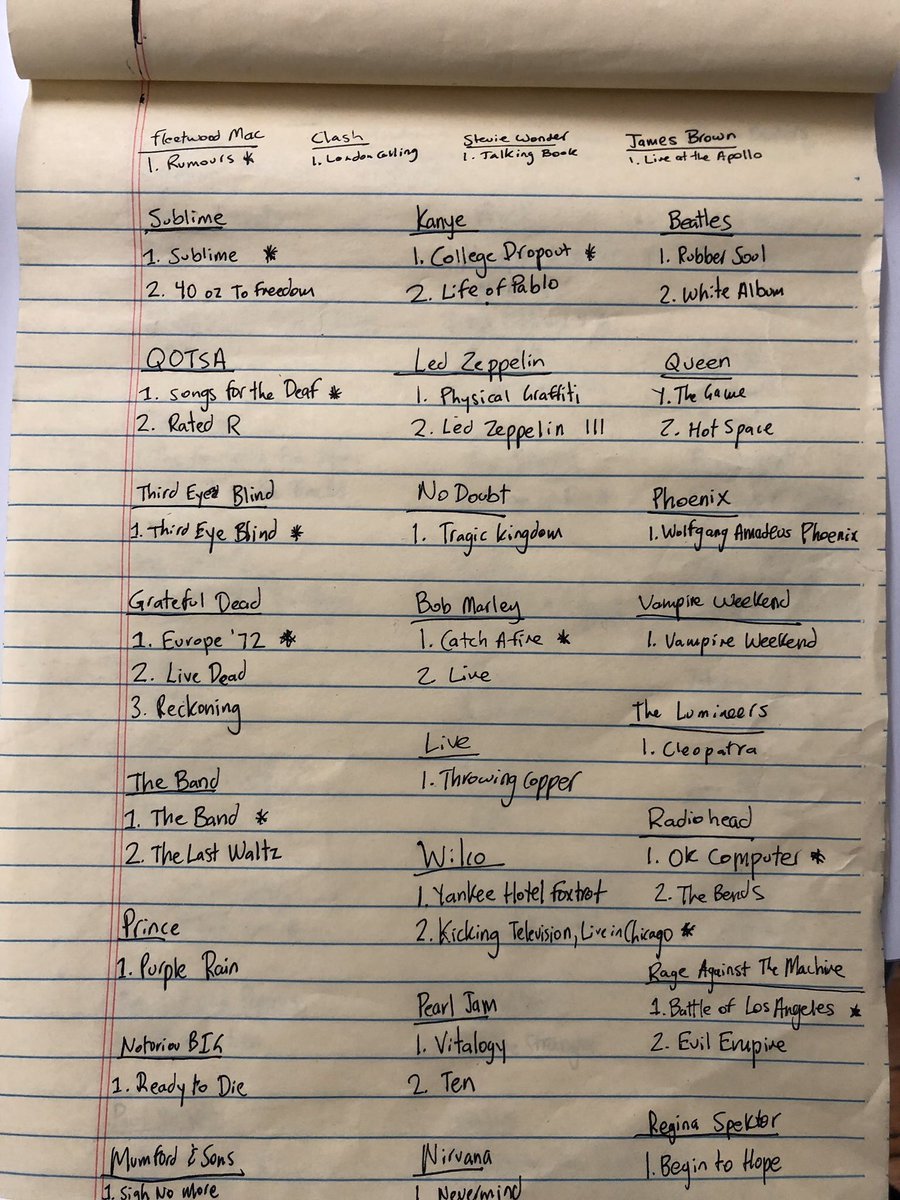 Fleetwood Mac
1. Rumours *
Clash
1. London Calling
Stevie Wonder
1. Talking Book
James Brown
1. Live at the Apollo
Sublime
1. Sublime *
2. 40 oz To Freedom
Kanye
1. College Dropout *
2. Life of Pablo
Beatles
1. Rubber Soul
2. White Album
QOTSA
1. Songs for the Deaf *
2. Rated R
Led Zeppelin
1. Physical Graffiti
2. Led Zeppelin III
Queen
1. The Game
2. Hot Space
Third Eye Blind
1. Third Eye Blind *
No Doubt
1. Tragic Kingdom
Phoenix
1. Wolfgang Amadeus Phoenix
Grateful Dead
1. Europe '72 *
2. Live Dead
3. Reckoning
Bob Marley
1. Catch A fire *
2 Live
Vampire Weekend
1. Vampire Weekend
The Lumineers
1. Cleopatra
Live
1. Throwing Copper
The Band
1. The Band *
2. The Last Waltz
Radiohead
1. OK Computer *
2. The Bends
Wilco
1. Yankee Hotel Foxtrot
2. Kicking Television, Live in Chicago *
Prince
1. Purple Rain
Rage Against The Machine
1. Battle of Los Angeles *
2. Evil Empire
Pearl Jam
1. Vitalogy
2. Ten
Notoriou BIG
1. Ready to Die
Regina Spektor
1. Begin to Hope
Mumford & Sons
1. Sigh No More
Nirvana
1. Nevermind